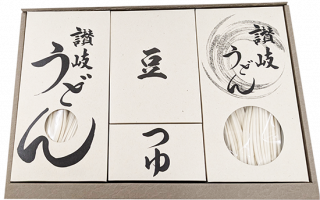 讃岐
うどん
豆
つゆ
讃岐
うどん